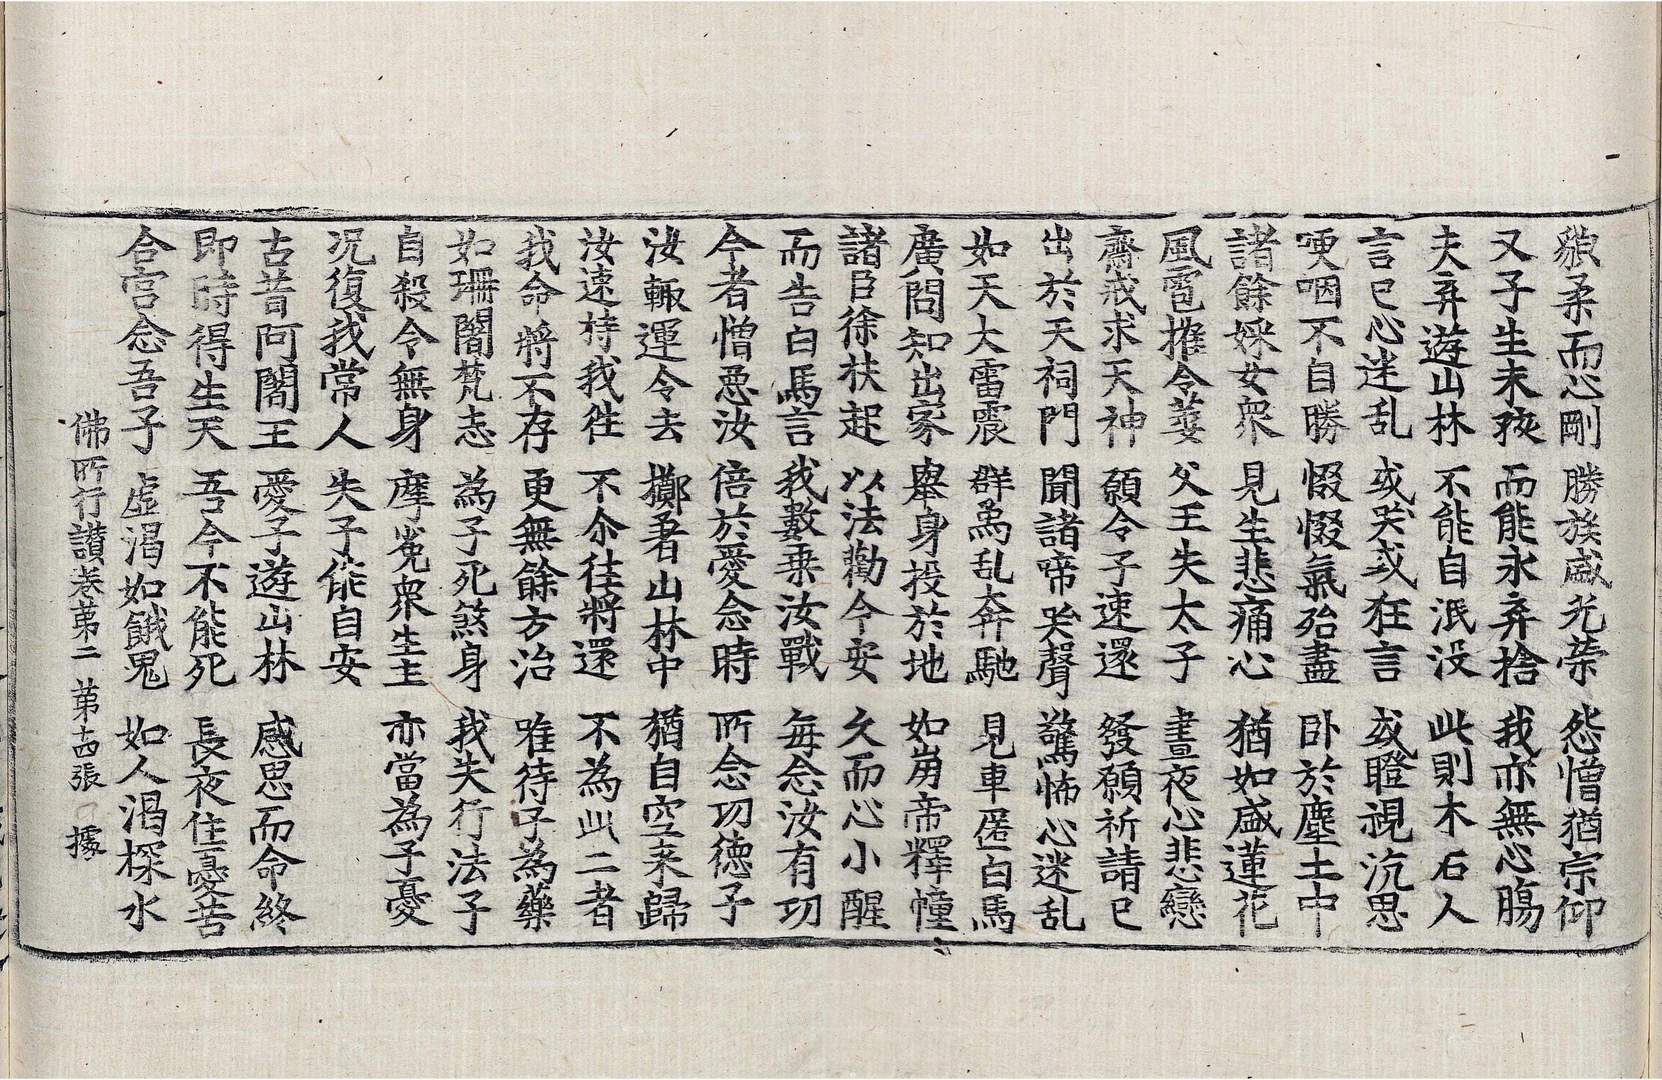 貌柔而心剛 勝族盛光榮 怨憎猶宗仰
又子生未孩 而能永弃捨 我亦無心膓
夫弃遊山林 不能自泯没 此則木石人
言已心迷乱 或哭或狂言 或瞪視沉思
哽咽不自勝 惙惙氣殆盡 卧於塵土中
諸餘婇女衆 見生悲痛心 猶如盛蓮花
風雹摧令萎 父王失太子 晝夜心悲戀
齋戒求天神 願令子速還 發願祈請已
出於天祠門 聞諸啼哭聲 驚怖心迷乱
如天大雷震 群象乱奔馳 見車匿白馬
廣問知出家 舉身投於地 如崩帝釋幢
諸臣徐扶起 以法勸令安 久而心小醒
而告白馬言 我數乗汝戰 每念汝有功
今者憎惡汝 倍於愛念時 所念功德子
汝輙運令去 擲著山林中 猶自空来歸
汝速持我往 不尒往將還 不為此二者
我命將不存 更無餘方治 唯待子為藥
如珊闍梵志 為子死煞身 我失行法子
自殺令無身 摩㝹衆生主 亦當為子憂
况復我常人 失子能自安
古昔阿闍王 愛子遊山林 感思而命終
即時得生天 吾今不能死 長夜住憂苦
合宫念吾子 虚渴如餓鬼 如人渴探水
佛所行讃卷第二 第十四張 據